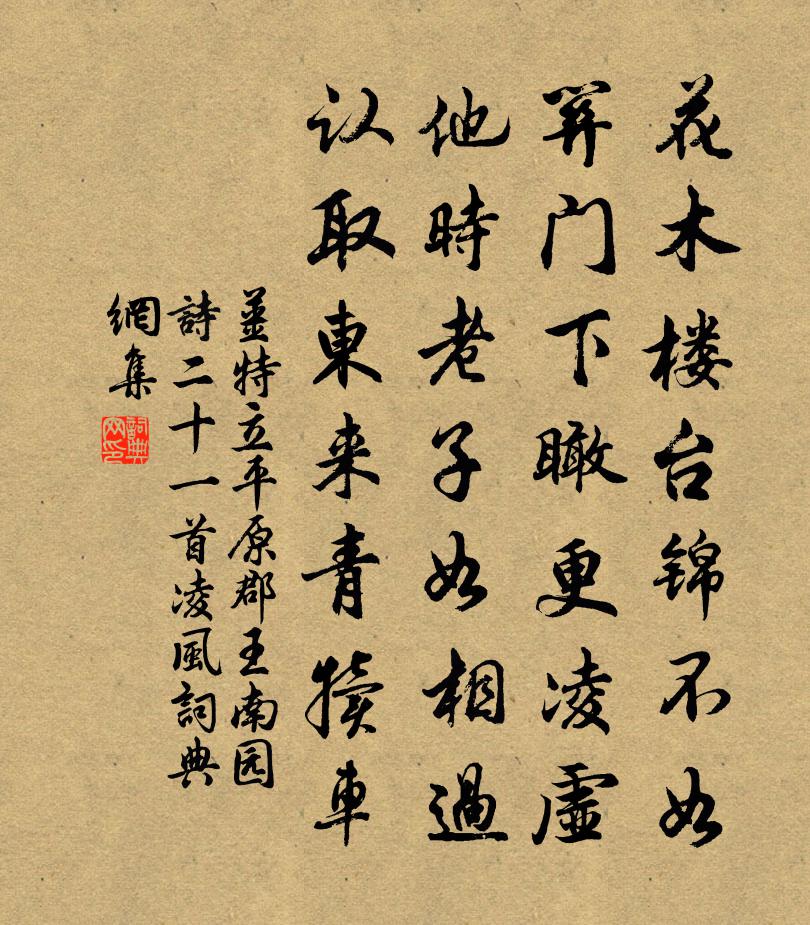 花木楼台锦不如
筭门下瞰更凌虚
他時老子如相過
认取東来青犊車
姜特立平原郡王南园
詩二十一首凌風詞典
網集
詞典
网印